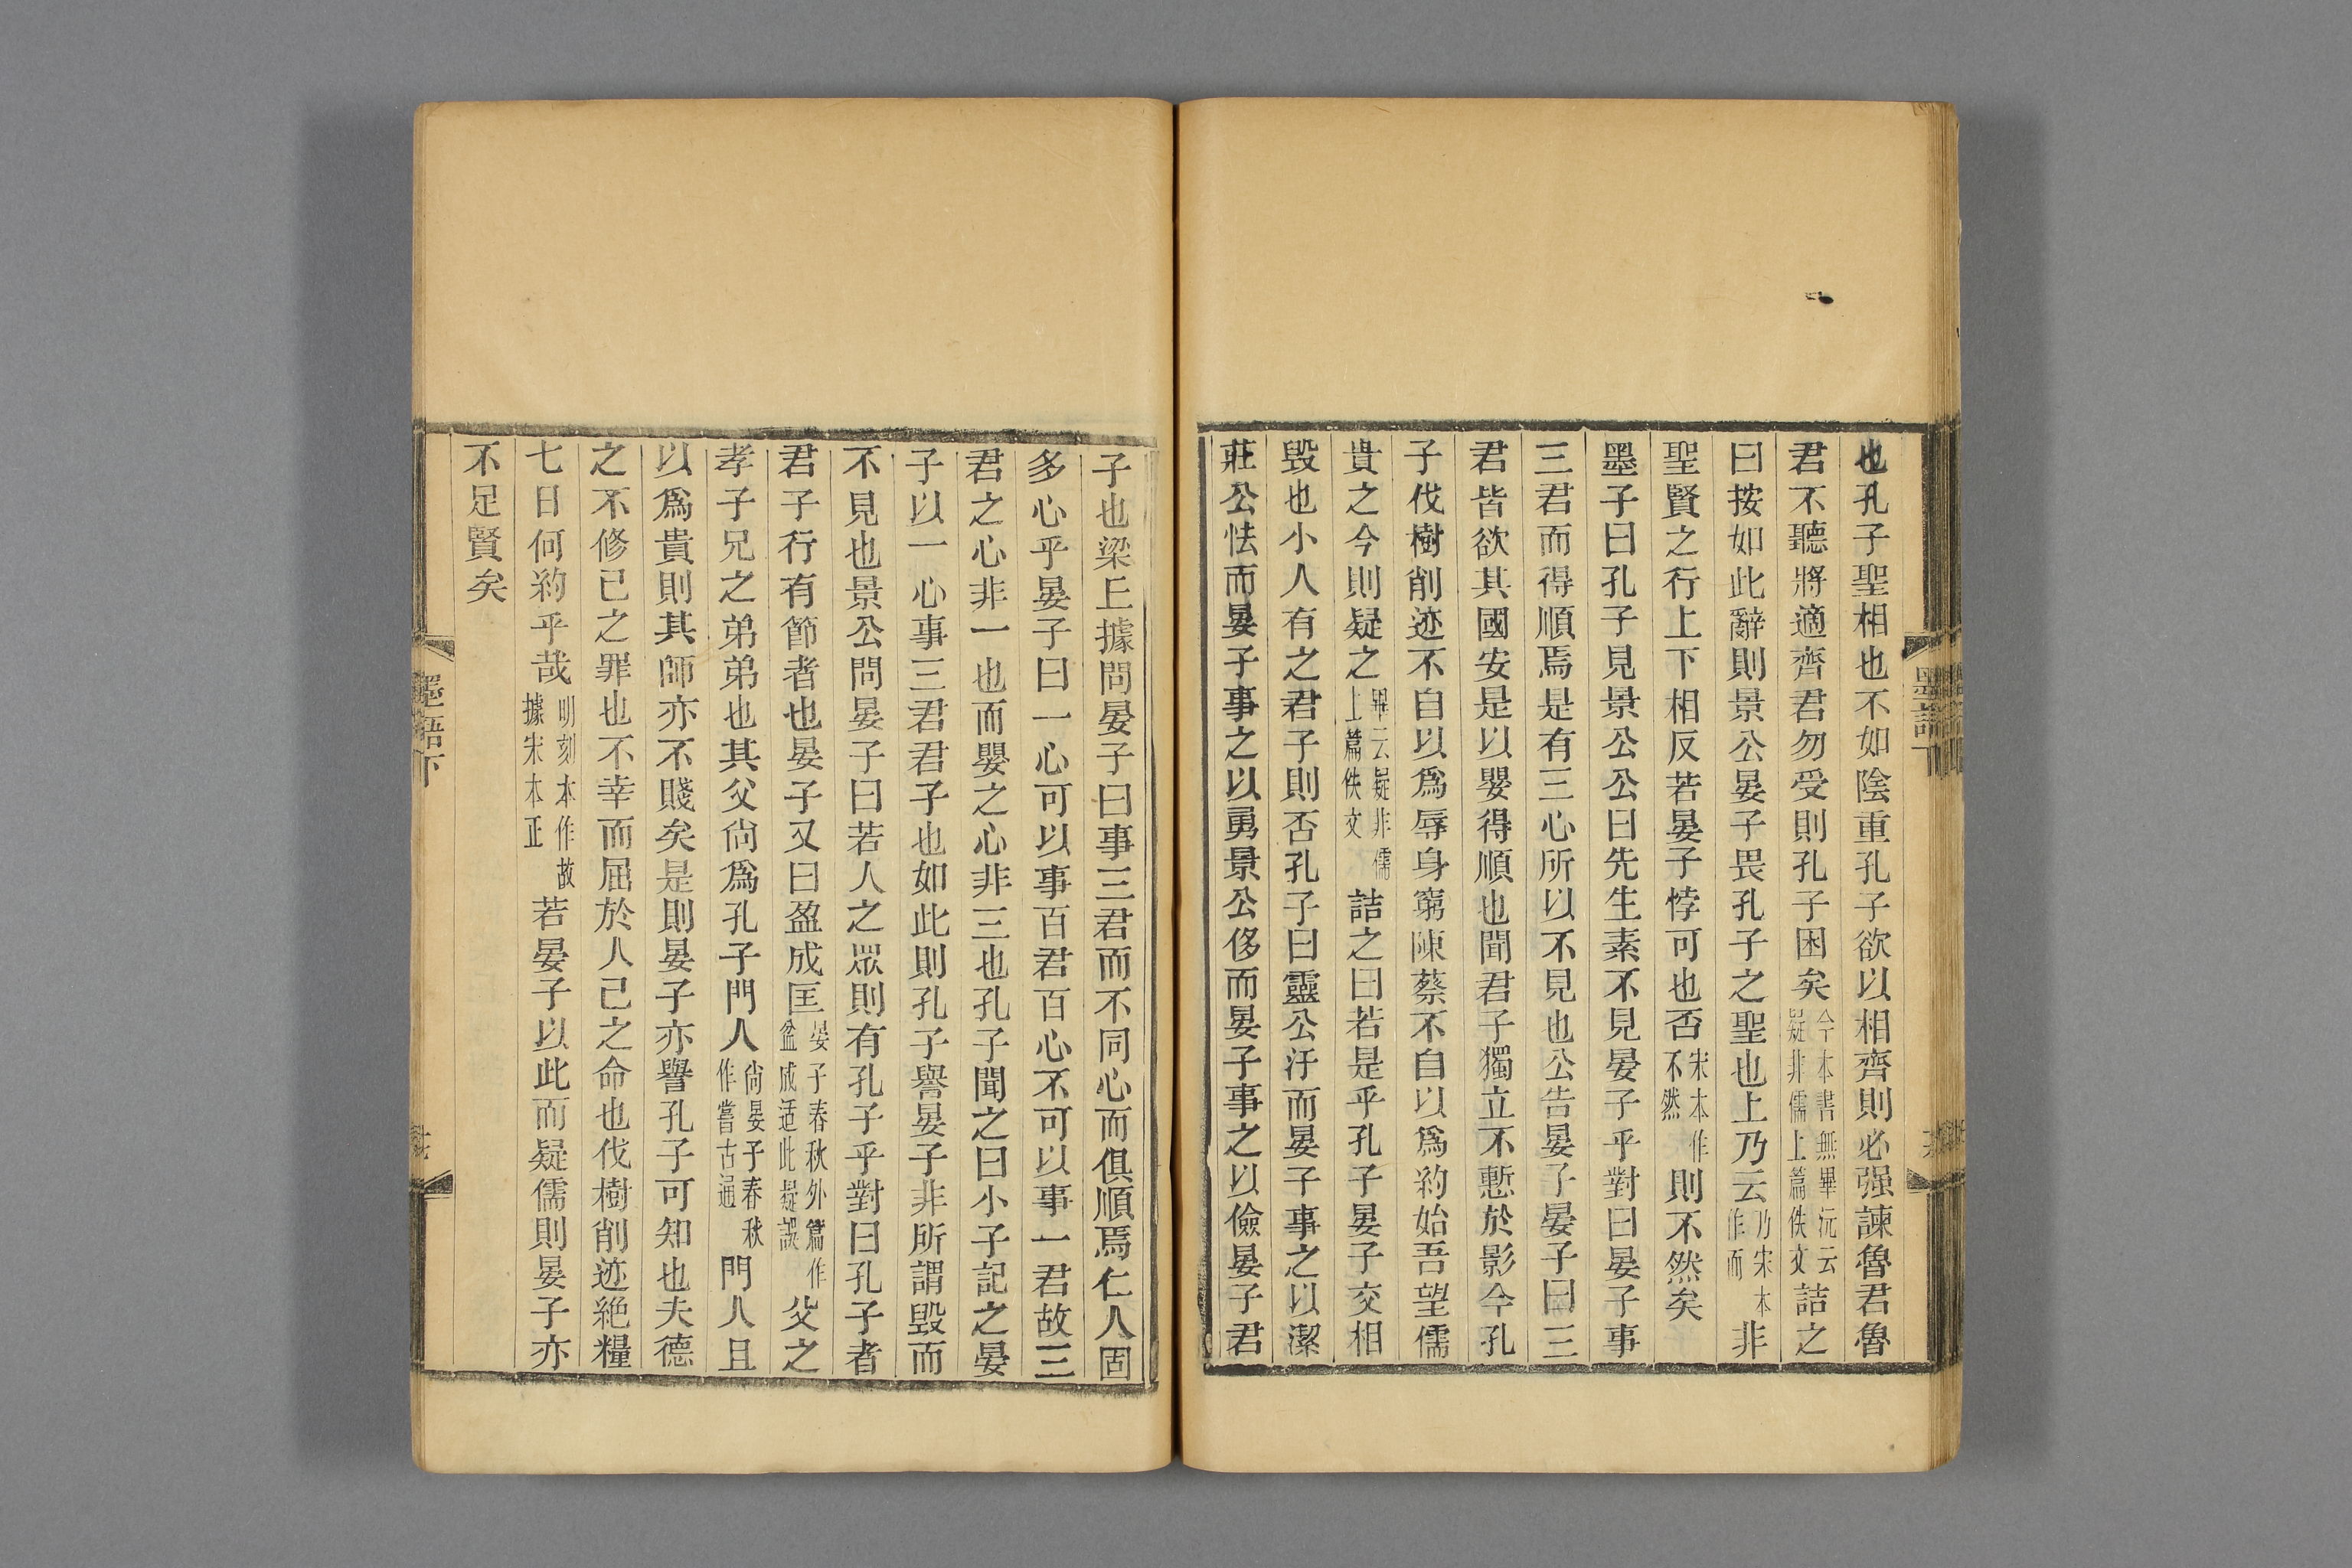 也孔子聖相也不如陰重孔子欲以相齊則必强諫魯君魯
君不聽將適齊君勿受則孔子困矣今本書無畢沅云疑非儒上篇佚文詰之
曰按如此辭則景公晏子畏孔子之聖也上乃云乃宋本作而非
聖賢之行上下相反若晏子悖可也否宋本作不然則不然矣
墨子曰孔子見景公公曰先生素不見晏子乎對曰晏子事
三君而得順焉是有三心所以不見也公告晏子晏子曰三
君皆欲其國安是以嬰得順也聞君子獨立不慙於影今孔
子伐樹削迹不自以爲辱身窮陳蔡不自以爲約始吾望儒
貴之今則疑之畢云疑非儒上篇佚文詰之曰若是乎孔子晏子交相
毁也小人有之君子則否孔子曰靈公汙而晏子事之以潔
莊公怯而晏子事之以勇景公侈而晏子事之以儉晏子君
墨語下
子也梁丘據問晏子曰事三君而不同心而俱順焉仁人固
多心乎晏子曰一心可以事百君百心不可以事一君故三
君之心非一也而嬰之心非三也孔子聞之曰小子記之晏
子以一心事三君君子也如此則孔子譽晏子非所謂毁而
不見也景公問晏子曰若人之眾則有孔子乎對曰孔子者
君子行有節者也晏子又曰盈成匡晏子春秋外篇作盆成适此疑誤父之
孝子兄之弟弟也其父尙爲孔子門人尙晏子春秋作嘗古通門人且
以爲貴則其師亦不賤矣是則晏子亦譽孔子可知也夫德
之不修己之罪也不幸而屈於人己之命也伐樹削迹絶糧
七日何約乎哉明刻本作故據宋本正若晏子以此而疑儒則晏子亦
不足賢矣
墨語下